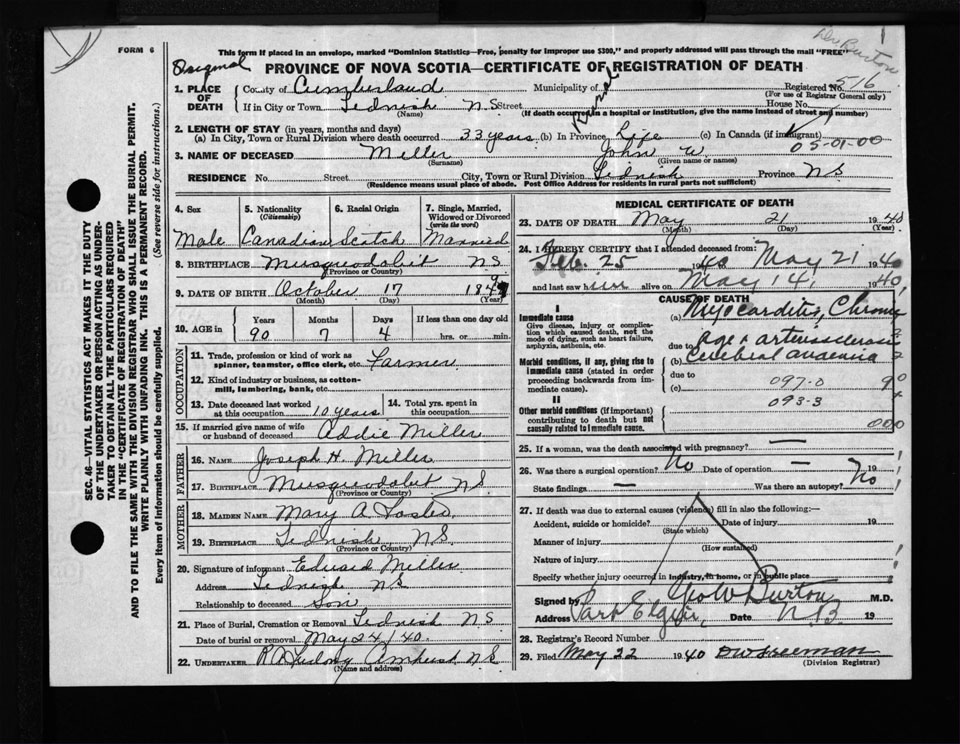 FORM 6
This form if placed in an envelope, marked "Dominion Statistics—Free, penalty for improper use $300," and properly addressed will pass through the mail "FREE"
Original PROVINCE OF NOVA SCOTIA—CERTIFICATE OF REGISTRATION OF DEATH
Burton
1. PLACE OF DEATH
County of Cumberland Municipality of Registered No. 516
(For use of Registrar General only)
If in City or Town Tidnish N.S. Street House No.
(Name) (If death occurred in a hospital or institution, give the name instead of street and number)
2. LENGTH OF STAY (in years, months and days)
(a) In City, Town or Rural Division where death occurred 33 years (b) In Province Life (c) In Canada (if immigrant)
05-01-00
3. NAME OF DECEASED Miller John W.
(Surname) (Given name or names)
RESIDENCE No. Street City, Town or Rural Division Tidnish Province NS
(Residence means usual place of abode. Post Office Address for residents in rural parts not sufficient)
4. Sex 5. Nationality (Citizenship) 6. Racial Origin 7. Single, Married, Widowed or Divorced (write the word)
Male Canadian Scotch Married
8. BIRTHPLACE Musquodobit NS
(Province or Country)
9. DATE OF BIRTH October 17 1849
(Month) (Day) (Year)
10. AGE in Years Months Days If less than one day old
90 7 4 hrs. or min.
OCCUPATION
11. Trade, profession or kind of work as spinner, teamster, office clerk, etc. Farmer
12. Kind of industry or business, as cotton-mill, lumbering, bank, etc.
13. Date deceased last worked at this occupation 10 years 14. Total yrs. spent in this occupation
15. If married give name of wife or husband of deceased Addie Miller
FATHER
16. NAME Joseph H. Miller
17. BIRTHPLACE Musquodobit NS
(Province or Country)
MOTHER
18. MAIDEN NAME Mary A.
19. BIRTHPLACE Tidnish NS.
(Province or Country)
20. Signature of informant Edward Miller
Address Tidnish NS
Relationship to deceased Son
21. Place of Burial, Cremation or Removal Tidnish NS
Date of burial or removal May 24/40.
22. UNDERTAKER Amherst NS
(Name and address)
MEDICAL CERTIFICATE OF DEATH
23. DATE OF DEATH May 21 1940
(Month) (Day) (Year)
24. I HEREBY CERTIFY that I attended deceased from:
Feb. 25 1940 May 21 1940
and last saw him alive on May 14, 1940,
CAUSE OF DEATH
I
Immediate cause
Give disease, injury or complication which caused death, not the mode of dying, such as heart failure, asphyxia, asthenia, etc.
(a) Myocarditis, Chronic
due to Age & arteriosclerosis
Morbid conditions, if any, giving rise to immediate cause (stated in order proceeding backwards from immediate cause).
(b) Cerebral anaemia
due to
(c) 097-0
093-3
II
Other morbid conditions (if important) contributing to death but not causally related to immediate cause.
000
25. If a woman, was the death associated with pregnancy? —
26. Was there a surgical operation? No Date of operation — 19
State findings — Was there an autopsy? No
27. If death was due to external causes (violence) fill in also the following:—
Accident, suicide or homicide? Date of injury 19
(State which)
Manner of injury
(How sustained)
Nature of injury
Specify whether injury occurred in industry, in home, or in public place
Signed by Burton M.D.
Address Port Elgin, Date N B 19
28. Registrar's Record Number
29. Filed May 22 1940 D W Freeman
(Division Registrar)
SEC. 46—VITAL STATISTICS ACT MAKES IT THE DUTY
OF THE UNDERTAKER OR PERSON ACTING AS UNDER-
TAKER TO OBTAIN ALL THE PARTICULARS REQUIRED
IN THE "CERTIFICATE OF REGISTRATION OF DEATH"
AND TO FILE THE SAME WITH THE DIVISION REGISTRAR WHO SHALL ISSUE THE BURIAL PERMIT.
WRITE PLAINLY WITH UNFADING INK. THIS IS A PERMANENT RECORD.
Every item of information should be carefully supplied. (See reverse side for instructions.)